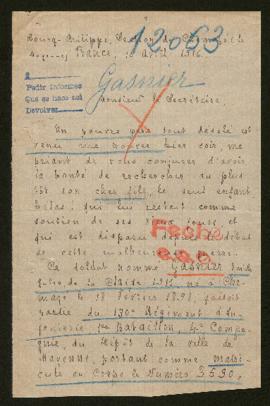 Bourg-Philippe,
France, Avril 1916
12063
Pedir informes
Que se hace así
Devolver
Gasnier
Monsieur le Secrétaire
Un pauvre père tout désolé est
venu me trouver hier soir me
priant de vous conjurer d'avoir
la bonté de rechercher au plus
tôt son cher fils, le seul enfant
hélas! qui lui restait comme
soutien de ses vieux jours et
qui est disparu depuis le début
de cette malheureuse guerre.
Fecha
Ce soldat nommé Gasnier
de la Classe 1911, né à
le 18 Février 1891, faisait
partie du 130e Régiment d'In-
fanterie 1er Bataillon, 4e Compa-
gnie, du Dépôt de la ville de
Mayenne, portant comme matri-
cule au Corps le Numéro 3530.